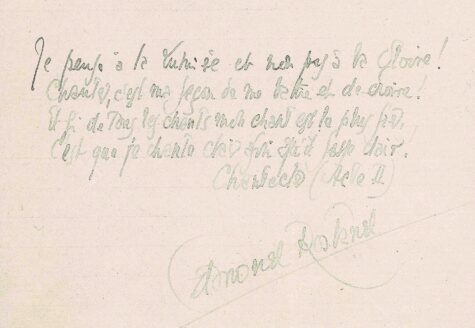 Je pense à la lumière et non pas à la gloire !
Chanter, c'est ma façon de me battre et de croire !
Et si de tous les chants mon chant est le plus fier,
C'est que je chante clair afin qu'il fasse clair.
Chantecler (Acte II)
Edmond Rostand